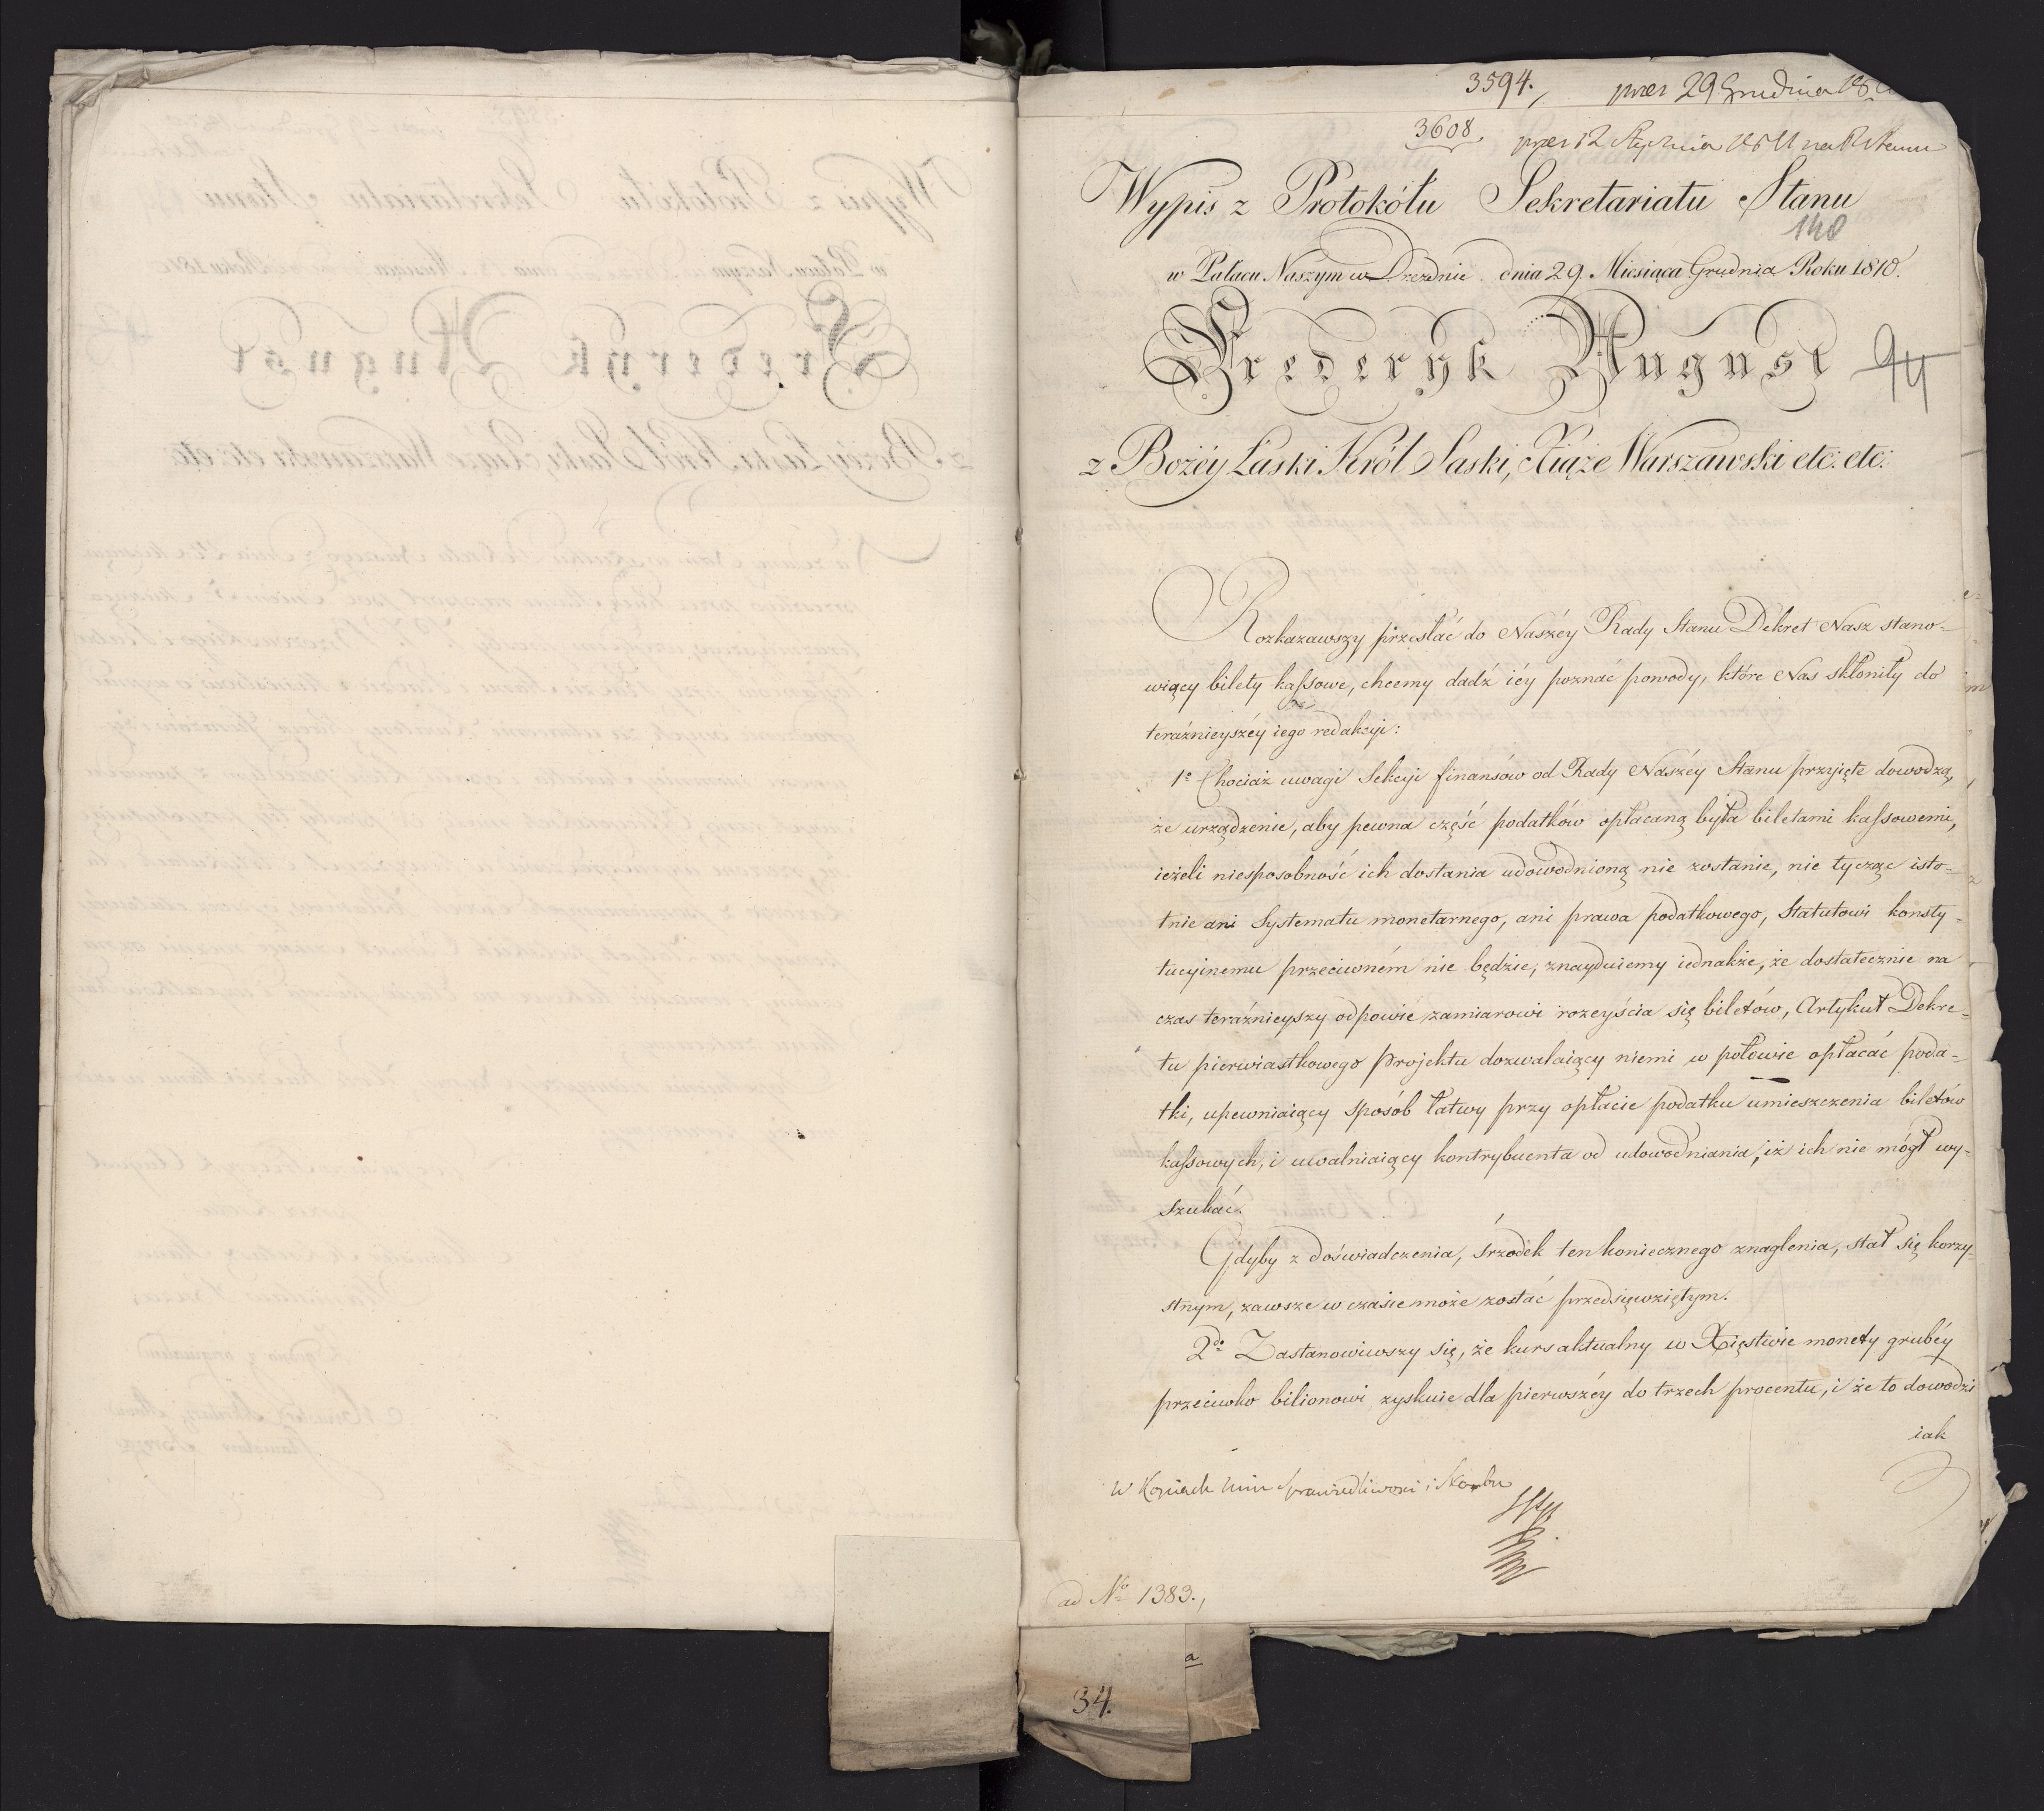 3594.
prez 29 Grudnia
3608.
prez 12 Stycznia 1811 na R Stanu
Wypis z Protokółu Sekretariatu Stanu
148
w Pałacu Naszym w Dreznie dnia 29 Miesiąca Grudnia Roku 1810.
Frederyk August
94
z Bożéy Łaski Król Saski, Xiąże Warszawski etc: etc:
Rozkazawszy przesłać do Naszéy Rady Stanu Dekret Nasz stano-
wiący bilety kassowe, chcemy dadź iéy poznać powody, które Nas skłoniły do
teraźnieyszéy iego redakcyi:
1° Chociaż uwagi Sekcyi finansów od Rady Naszéy Stanu przyięte dowodzą,
że urządzenie, aby pewna część podatków opłacaną była biletami kassowemi,
ieżeli niesposobność ich dostania udowodnioną nie zostanie, nie tycząc isto-
tnie ani Systematu monetarnego, ani prawa podatkowego, Statutowi konsty-
tucyinemu przeciwném nie będzie; znayduiemy iednakże, że dostatecznie na
czas teraźnieyszy odpowié zamiarowi rozeyścia się biletów, Artykuł Dekre-
tu pierwiastkowego Projektu dozwalaiący niemi w połowie opłacać poda-
tki, upewniaiący sposób łatwy przy opłacie podatku umieszczenia biletów
kassowych, i uwalniaiący kontrybuenta od udowodniania, iż ich nie mógł wy-
szukać.
Gdyby z doświadczenia, śrzodek ten koniecznego znaglenia, stał się korzy-
stnym, zawsze w czasie może zostać przedsięwziętym.
2do Zastanowiwszy się, że kurs aktualny w Xięstwie monety grubéy
przeciwko bilionowi zyskuie dla pierwszéy do trzech procentu, i że to dowodzi
iak
w Kopiach Min Sprawiedliwosci i Skarbu
ad No 1383.
a
34.